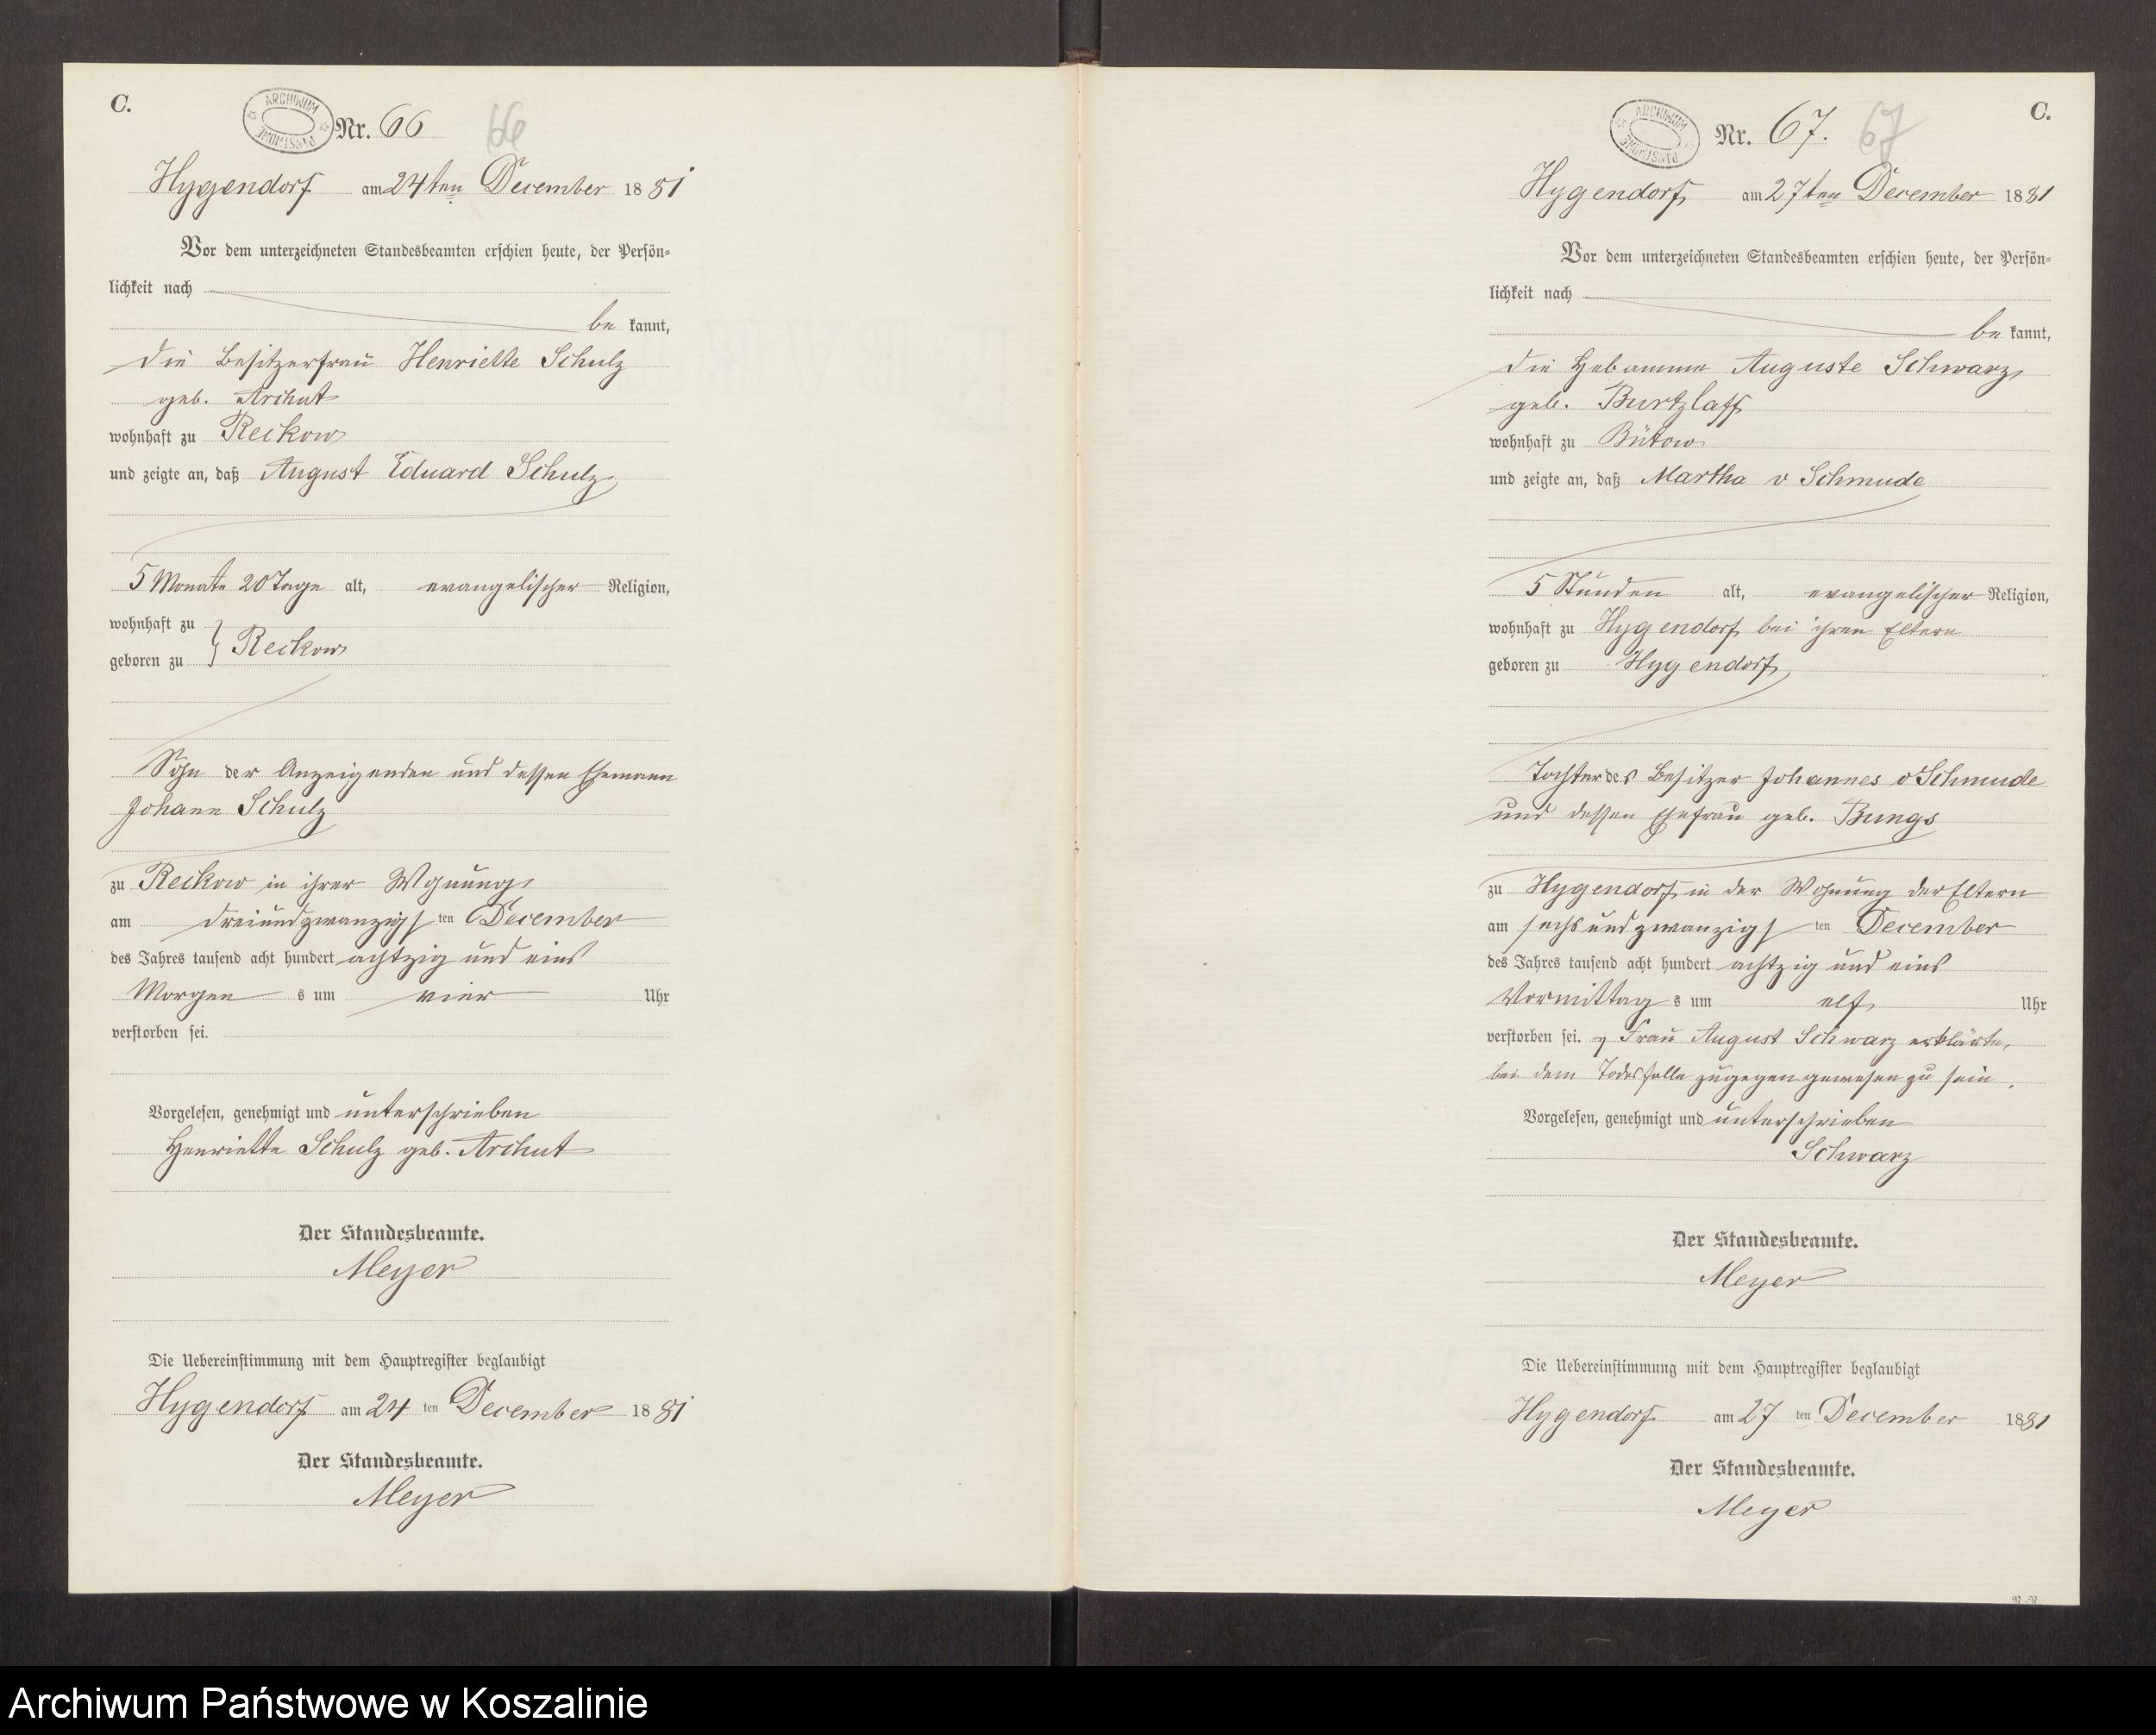 C.
ARCHIWUM PAŃSTWOWE
Nr. 66
66
Hygendorf am 24ten December 1881
Vor dem unterzeichneten Standesbeamten erschien heute, der Persön-
lichkeit nach
be kannt,
die Besitzerfrau Henriette Schulz
geb. Archut
wohnhaft zu Reckow
und zeigte an, daß August Eduard Schulz
5 Monate 20 Tage alt, evangelischer Religion,
wohnhaft zu
geboren zu } Reckow
Sohn der Anzeigenden und dessen Ehemann
Johann Schulz
zu Reckow in ihrer Wohnung
am dreiundzwanzigs ten December
des Jahres tausend acht hundert achtzig und eins
Morgen s um vier Uhr
verstorben sei.
Vorgelesen, genehmigt und unterschrieben
Henriette Schulz geb. Archut
Der Standesbeamte.
Meyer
Die Uebereinstimmung mit dem Hauptregister beglaubigt
Hygendorf am 24 ten December 1881
Der Standesbeamte.
Meyer
C.
ARCHIWUM PAŃSTWOWE
Nr. 67.
67
Hygendorf am 27ten December 1881
Vor dem unterzeichneten Standesbeamten erschien heute, der Persön-
lichkeit nach
be kannt,
die Hebamme Auguste Schwarz
geb. Burtzlaff
wohnhaft zu Bütow
und zeigte an, daß Martha v Schmude
5 Stunden alt, evangelischer Religion,
wohnhaft zu Hygendorf bei ihren Eltern
geboren zu Hygendorf
Tochter des Besitzer Johannes v Schmude
und dessen Ehefrau geb. Bungs
zu Hygendorf in der Wohnung der Eltern
am sechsundzwanzigs ten December
des Jahres tausend acht hundert achtzig und eins
Vormittag s um elf Uhr
verstorben sei. Frau August Schwarz erklärte,
bei dem Todesfalle zugegen gewesen zu sein.
Vorgelesen, genehmigt und unterschrieben
Schwarz
Der Standesbeamte.
Meyer
Die Uebereinstimmung mit dem Hauptregister beglaubigt
Hygendorf am 27 ten December 1881
Der Standesbeamte.
Meyer
Archiwum Państwowe w Koszalinie